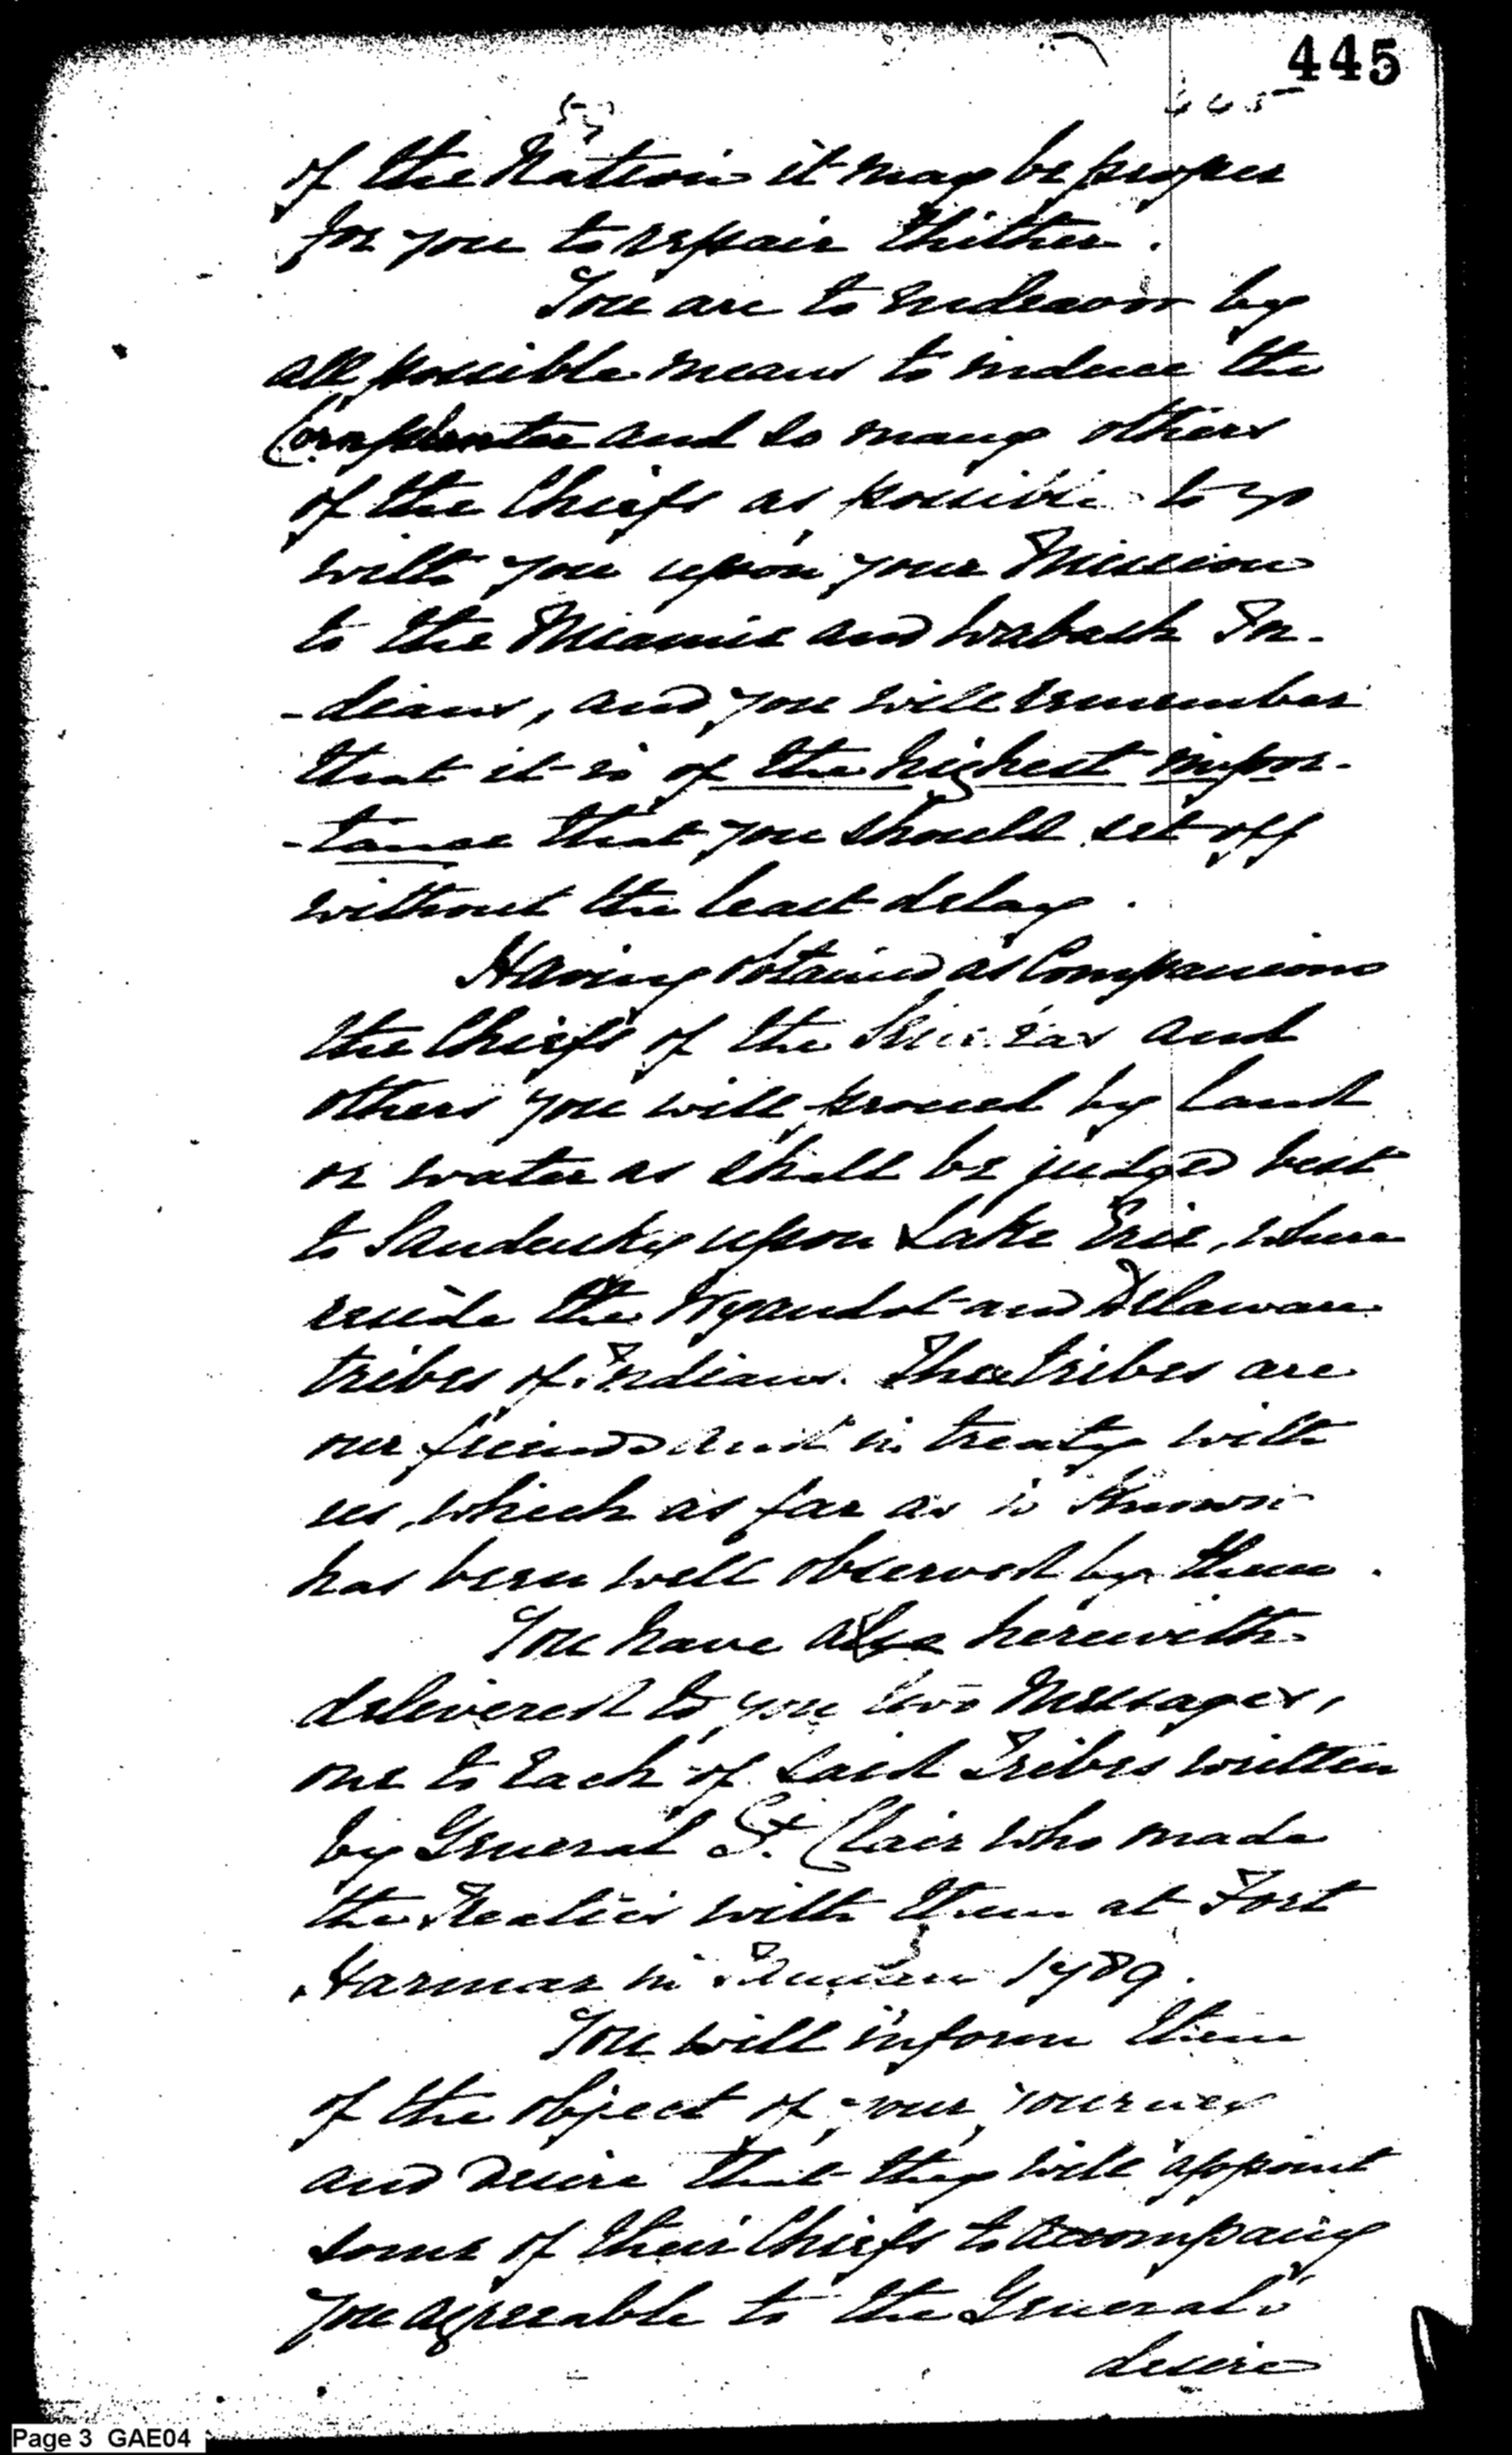 445
445
of the Nation it may be proper
for you to repair thither.
You are to endeavor by
all possible means to induce the
Cornplanter and so many others
of the Chiefs as possible to go
with you upon your Mission
to the Miamis and Wabash In-
-dians, and you will remember
that it is of the highest impor-
-tance that you should set off
without the least delay.
Having obtained as Companions
the Chiefs of the Senecas and
others you will proceed by land
or water as shall be judged best
to Sandusky upon Lake Erie, where
reside the Wyandot and Delaware
tribes of Indians. These tribes are
our friends and in treaty with
us, which as far as is known
has been well observed by them.
You have also herewith
delivered to you two Messages,
one to each of said Tribes written
by General St. Clair who made
the Treaties with them at Fort
Harmar in January 1789.
You will inform them
of the object of your journey
and desire that they will appoint
some of their Chiefs to accompany
you agreeable to the General's
desire
Page 3 GAE04